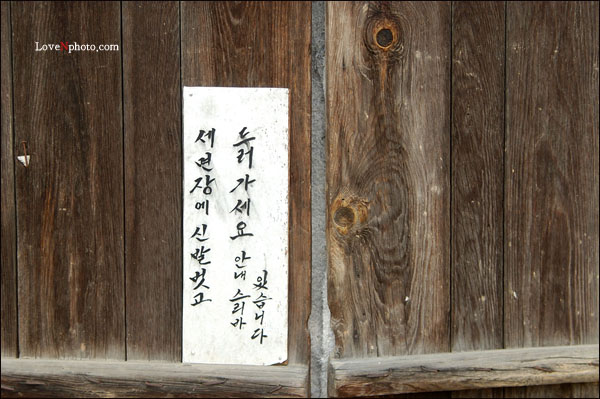 LoveNphoto.com
세면장에 신발벗고
드러가세요 안내 스리바
있습니다